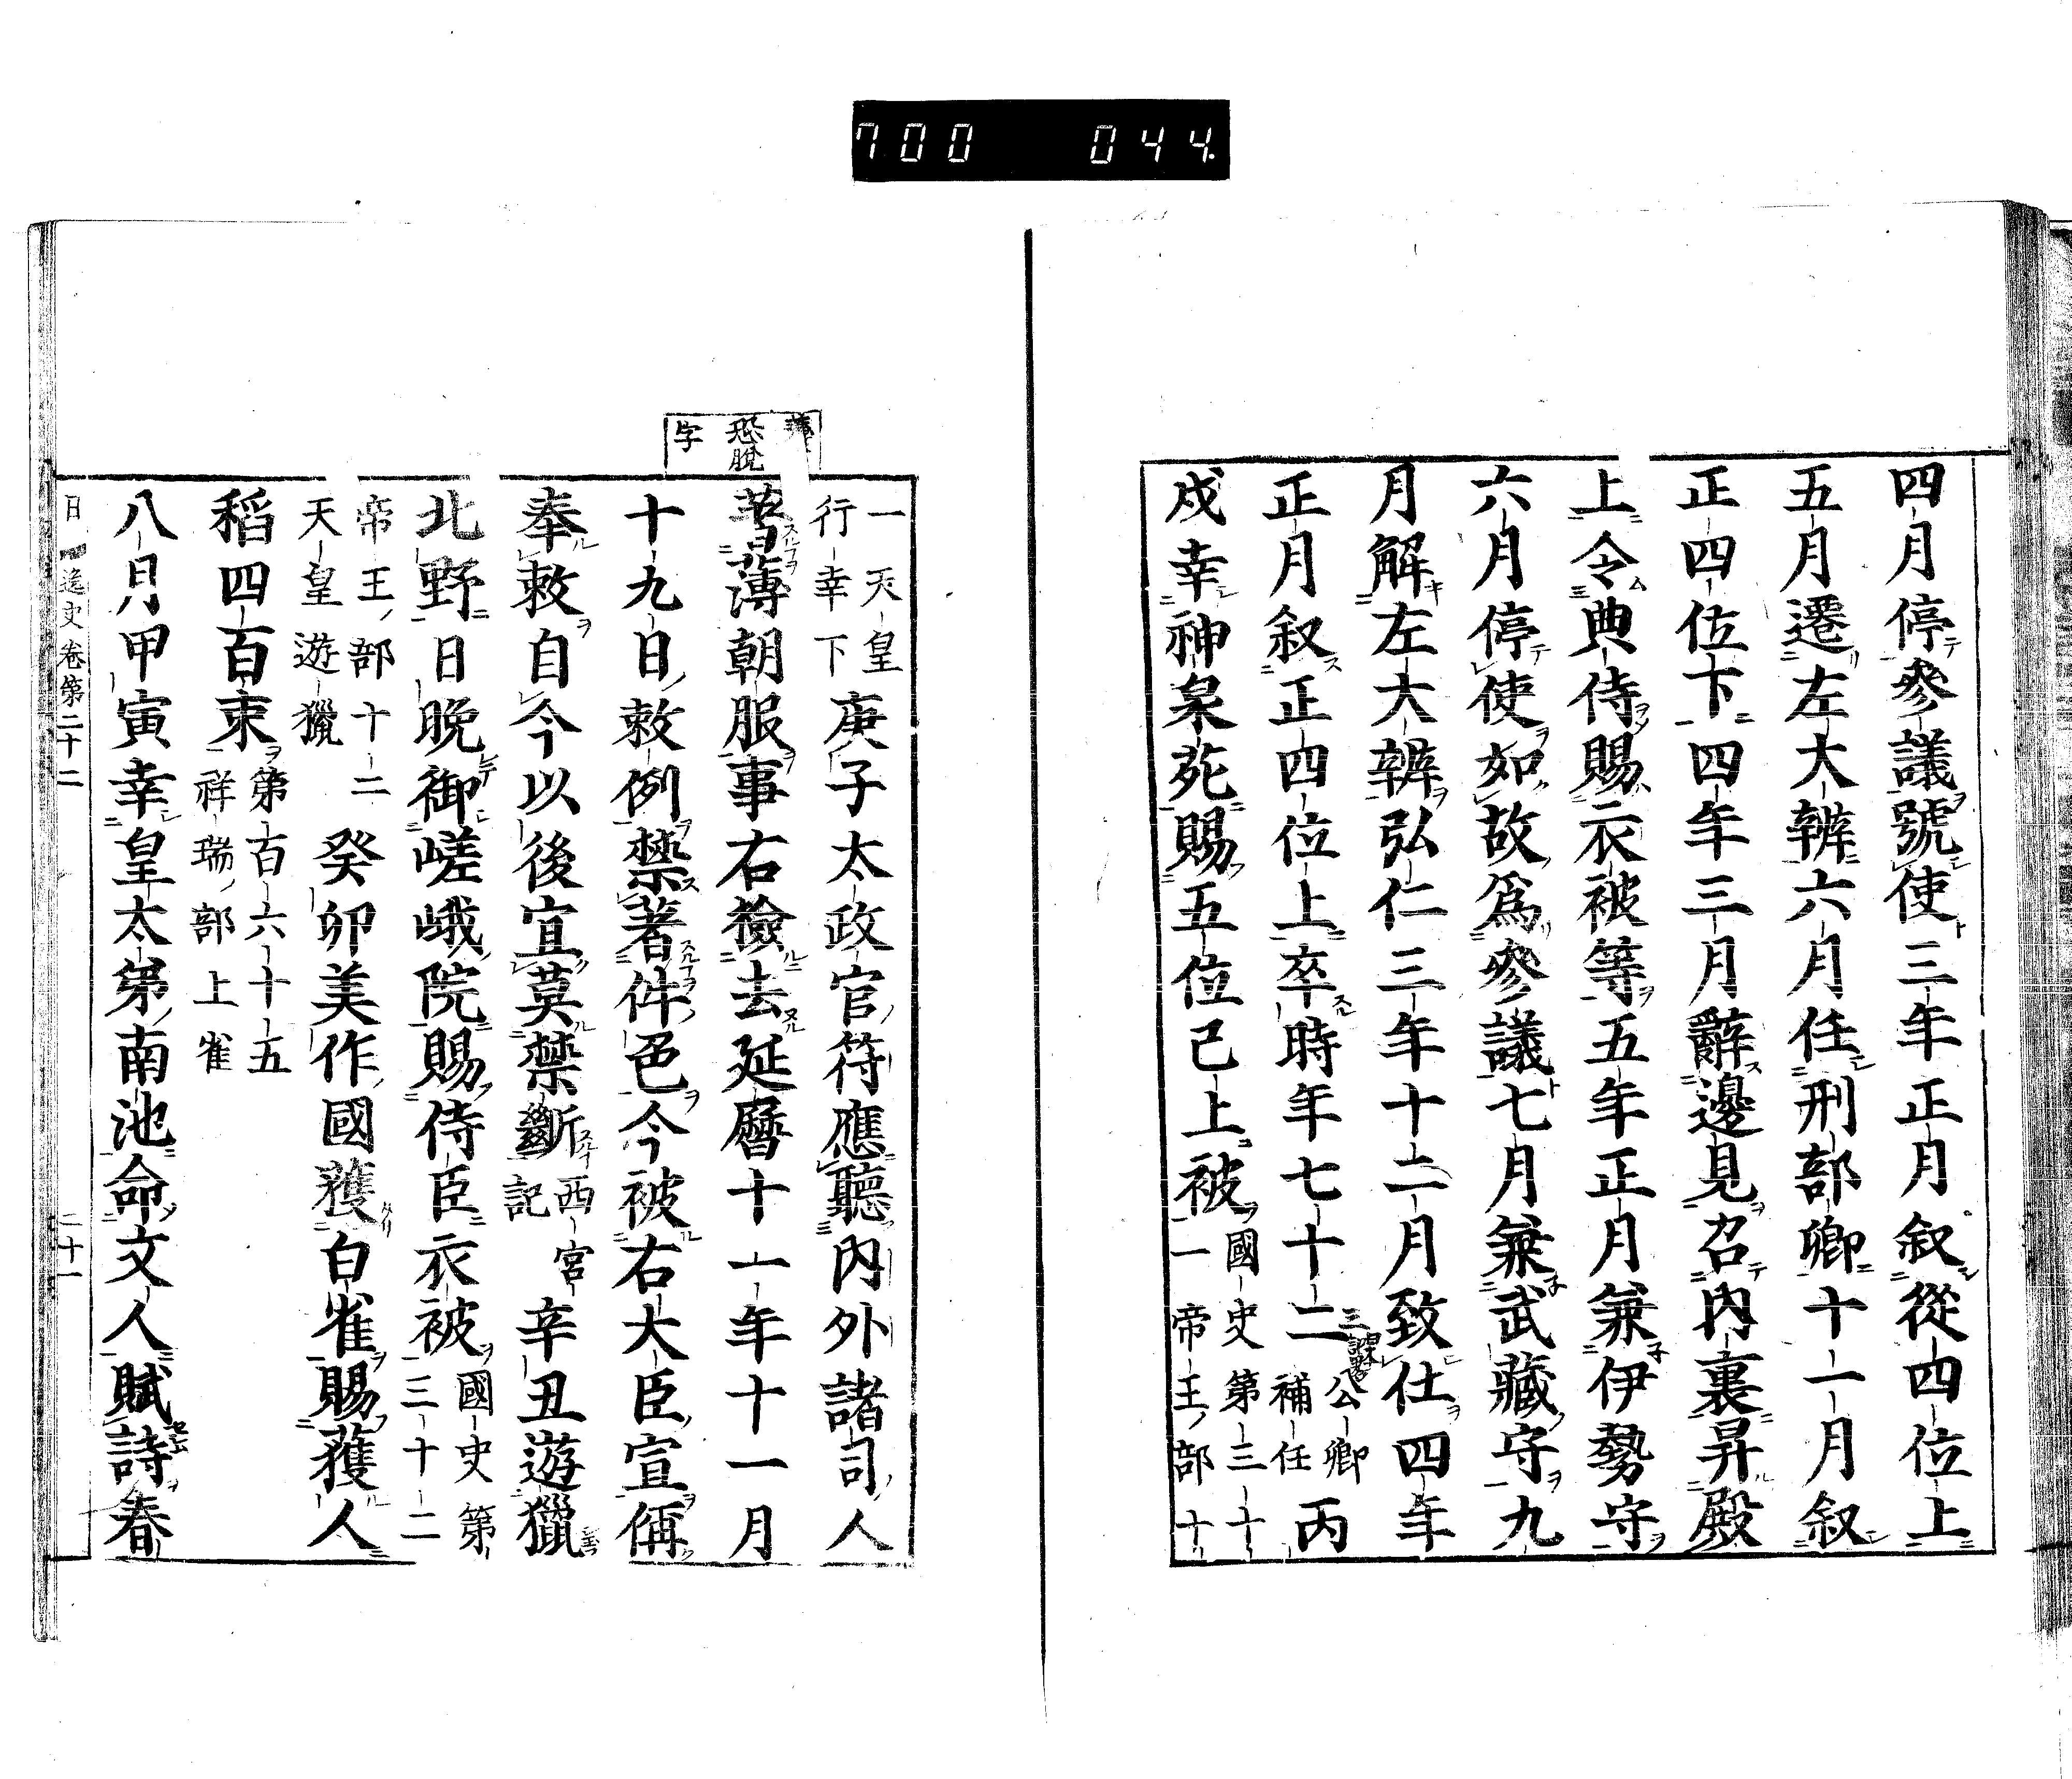 700 044.
四月停參議號使三年正月叙從四位上
五月遷左大辨六月任刑部卿十一月叙
正四位下四年三月辭邊見召內裏昇殿
上令典侍賜衣被等五年正月兼伊勢守
六月停使如故爲參議七月兼武藏守九
月解左大辨弘仁三年十二月致仕四年
正月叙正四位上卒時年七十二
公卿
補任
丙
戌幸神泉苑賜五位已上被
國史第三十
一帝王部十
恐脫
字
一天皇
行幸下
庚子太政官符應聽內外諸司人
著薄朝服事右檢去延曆十一年十一月
十九日敕例禁著件色今被右大臣宣偁
奉敕自今以後宜莫禁斷
西宮
記
辛丑遊獵
北野日晚御嵯峨院賜侍臣衣被
國史第
三十二
帝王部十二
天皇遊獵
癸卯美作國獲白雀賜獲人
稻四百束
第百六十五
祥瑞部上雀
八月甲寅幸皇太弟南池命文人賦詩春
日 逸史卷第二十二
二十一